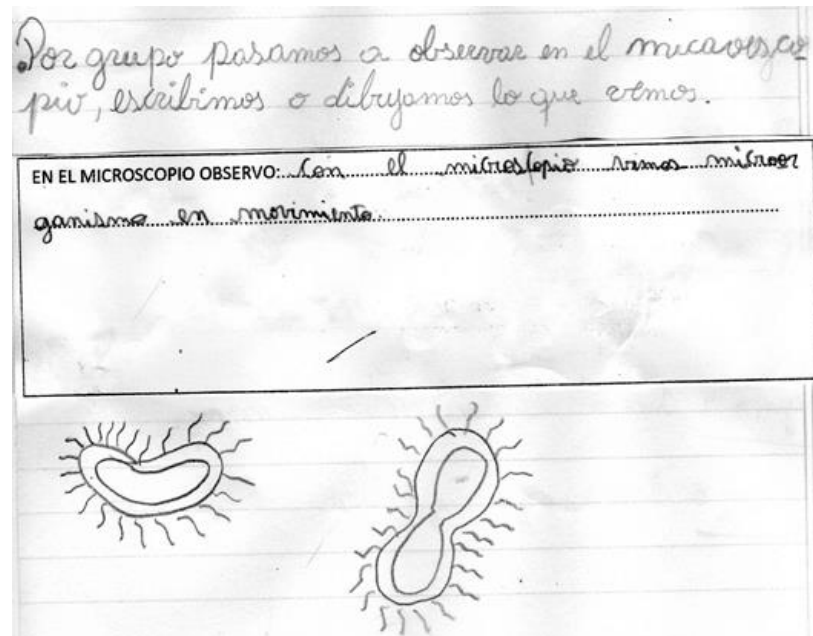 Por grupo pasamos a observar en el micaovesco
pio, escribimos o dibujamos lo que vemos.
EN EL MICROSCOPIO OBSERVO: Con el microscopio vimos microor
ganismo en movimiento.